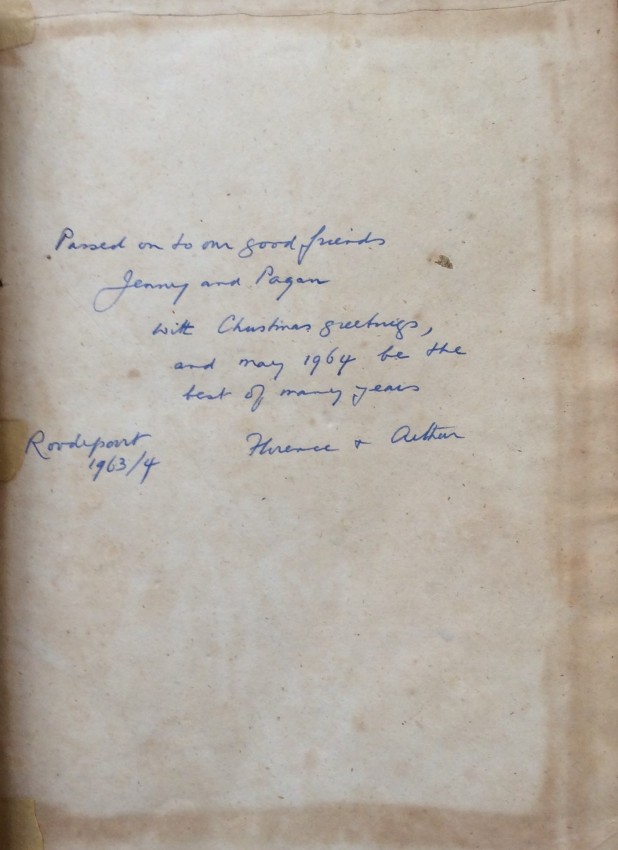 Passed on to our good friends
Jenney and Pagan
with Christmas greetings,
and may 1964 be the
best of many years
Roodepoort
1963/4
Florence + Arthur